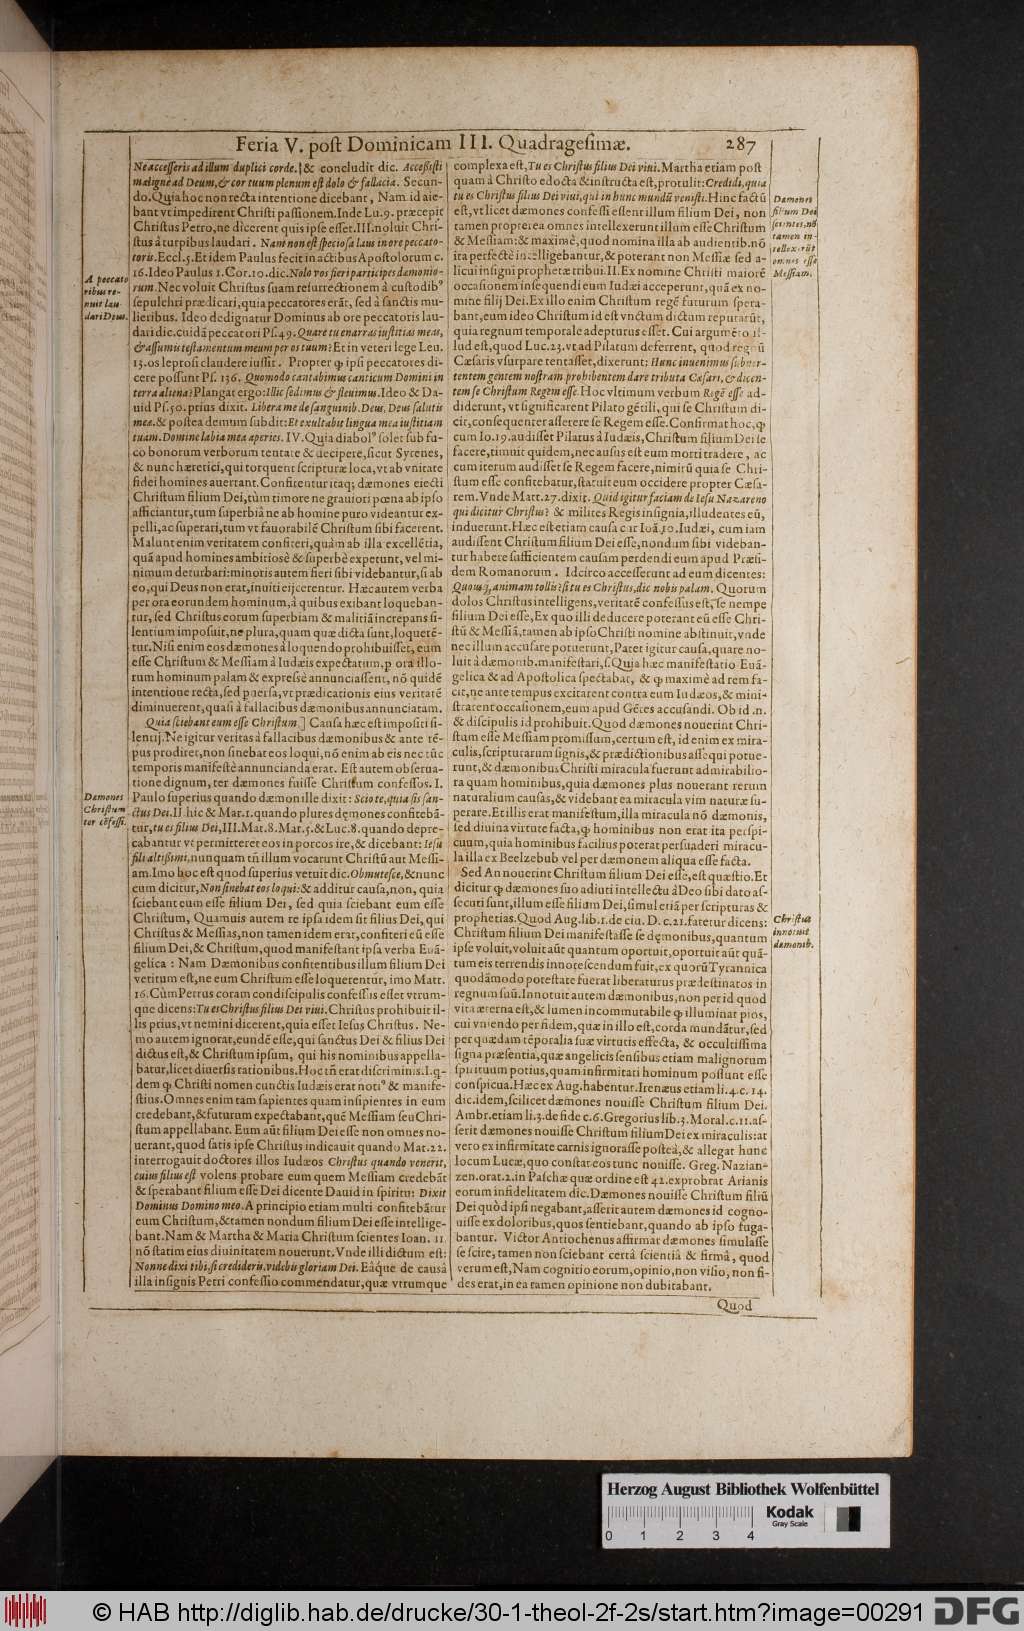 Feria V. post Dominicam III. Quadragesimæ. 287
Ne accesseris ad illum duplici corde.] & concludit dic. Accessisti
maligne ad Deum, & cor tuum plenum est dolo & fallacia. Secun-
do. Quia hoc non recta intentione dicebant, Nam id aie-
bant vt impedirent Christi passionem. Inde Lu. 9. præcepit
Christus Petro, ne dicerent quis ipse esset. III. noluit Chri-
stus à turpibus laudari. Nam non est speciosa laus in ore peccato-
toris. Eccl. 5. Et idem Paulus fecit in actibus Apostolorum c.
16. Ideo Paulus 1. Cor. 10. dic. Nolo vos fieri participes dæmonio-
rum. Nec voluit Christus suam resurrectionem à custodibꝰ
sepulchri prædicari, quia peccatores erāt, sed à sanctis mu-
lieribus. Ideo dedignatur Dominus ab ore peccatoris lau-
dari dic. cuidā peccatori Ps. 49. Quare tu enarras iustitias meas,
& assumis testamentum meum per os tuum? Et in veteri lege Leu.
13. os leprosi claudere iussit. Propter ꝙ ipsi peccatores di-
cere possunt Ps. 136. Quomodo cantabimus canticum Domini in
terra aliena? Plangat ergo: Illic sedimus & fleuimus. Ideo & Da-
uid Ps. 50. prius dixit. Libera me de sanguinib. Deus, Deus salutis
mea. & postea demum subdit: Et exultabit lingua mea iustitiam
tuam. Domine labia mea aperies. IV. Quia diabolꝰ solet sub fu-
co bonorum verborum tentare & decipere, sicut Syrenes,
& nunc hæretici, qui torquent scripturæ loca, vt ab vnitate
fidei homines auertant. Confitentur itaq; dæmones eiecti
Christum filium Dei, tùm timore ne grauiori pœna ab ipso
afficiantur, tum superbia ne ab homine puro videantur ex-
pelli, ac superari, tum vt fauorabilē Christum sibi facerent.
Malunt enim veritatem confiteri, quàm ab illa excellētia,
quā apud homines ambitiosè & superbè expetunt, vel mi-
nimum deturbari: minoris autem fieri sibi videbantur, si ab
eo, qui Deus non erat, inuiti eijcerentur. Hæc autem verba
per ora eorundem hominum, à quibus exibant loqueban-
tur, sed Christus eorum superbiam & malitiā increpans si-
lentium imposuit, ne plura, quam quæ dicta sunt, loquerē-
tur. Nisi enim eos dæmones à loquendo prohibuisset, cum
esse Christum & Messiam à Iudæis expectatum, p ora illo-
rum hominum palam & expressè annunciassent, nō quidē
intentione recta, sed puersa, vt prædicationis eius veritatē
diminuerent, quasi à fallacibus dæmonibus annunciatam.
Quia sciebant eum esse Christum.] Causa hæc est impositi si-
lentij. Ne igitur veritas à fallacibus dæmonibus & ante tē-
pus prodiret, non sinebat eos loqui, nō enim ab eis nec tūc
temporis manifestè annuncianda erat. Est autem obserua-
tione dignum, ter dæmones fuisse Christum confessos. I.
Paulo superius quando dæmon ille dixit: Scio te, quia sis san-
ctus Dei. II. hic & Mar. 1. quando plures dæmones confitebā-
tur, tu es filius Dei, III. Mat. 8. Mar. 5. & Luc. 8. quando depre-
cabantur vt permitteret eos in porcos ire, & dicebant: Iesu
fili altissimi, nunquam tñ illum vocarunt Christū aut Messi-
am. Imo hoc est quod superius vetuit dic. Obmutesce, & nunc
cum dicitur, Non sinebat eos loqui: & additur causa, non, quia
sciebant eum esse filium Dei, sed quia sciebant eum esse
Christum, Quamuis autem re ipsa idem sit filius Dei, qui
Christus & Messias, non tamen idem erat, confiteri eū esse
filium Dei, & Christum, quod manifestant ipsa verba Euā-
gelica: Nam Dæmonibus confitentibus illum filium Dei
vetitum est, ne eum Christum esse loquerentur, imo Matt.
16. Cùm Petrus coram condiscipulis confessus esset vtrum-
que dicens: Tu es Christus filius Dei viui. Christus prohibuit il-
lis prius, vt nemini dicerent, quia esset Iesus Christus. Ne-
mo autem ignorat, eundē esse, qui sanctus Dei & filius Dei
dictus est, & Christum ipsum, qui his nominibus appella-
batur, licet diuersis rationibus. Hoc tñ erat discriminis. I. q-
dem ꝙ Christi nomen cunctis Iudæis erat notiꝰ & manife-
stius. Omnes enim tam sapientes quam insipientes in eum
credebant, & futurum expectabant, quē Messiam seu Chri-
stum appellabant. Eum aūt filium Dei esse non omnes no-
uerant, quod satis ipse Christus indicauit quando Mat. 22.
interrogauit doctores illos Iudæos Christus quando venerit,
cuius filius est volens probare eum quem Messiam credebāt
& sperabant filium esse Dei dicente Dauid in spiritu: Dixit
Dominus Domino meo. A principio etiam multi confitebātur
eum Christum, & tamen nondum filium Dei esse intellige-
bant. Nam & Martha & Maria Christum scientes Ioan. 11
nō statim eius diuinitatem nouerunt. Vnde illi dictum est:
Nonne dixi tibi, si credideris, videbis gloriam Dei. Eáque de causâ
illa insignis Petri confessio commendatur, quæ vtrumque
A peccato
ribus re-
nuit lau-
dari Deus.
Dæmones
Christum
ter cōfessi.
complexa est, Tu es Christus filius Dei viui. Martha etiam post
quam à Christo edocta & instructa est, protulit: Credidi, quia
tu es Christus filius Dei viui, qui in hunc mundū venisti. Hinc factū
est, vt licet dæmones confessi essent illum filium Dei, non
tamen propterea omnes intellexerunt illum esse Christum
& Messiam: & maximè, quod nomina illa ab audientib. nō
ita perfectè intelligebantur, & poterant non Messiæ sed a-
licui insigni prophetæ tribui. II. Ex nomine Christi maiorē
occasionem insequendi eum Iudæi acceperunt, quā ex no-
mine filij Dei. Ex illo enim Christum regē futurum spera-
bant, eum ideo Christum id est vnctum dictum reputarūt,
quia regnum temporale adepturus esset. Cui argumēto il-
lud est, quod Luc. 23. vt ad Pilatum deferrent, quod regnū
Cæsaris vsurpare tentasset, dixerunt: Hunc inuenimus subuer-
tentem gentem nostram prohibentem dare tributa Cæsari, & dicen-
tem se Christum Regem esse. Hoc vltimum verbum Regē esse ad-
diderunt, vt significarent Pilato gētili, qui se Christum di-
cit, consequenter asserere se Regem esse. Confirmat hoc, ꝙ
cum Io. 19. audisset Pilatus à Iudæis, Christum filium Dei se
facere, timuit quidem, nec ausus est eum morti tradere, ac
cum iterum audisset se Regem facere, nimirū quia se Chri-
stum esse confitebatur, statuit eum occidere propter Cæsa-
rem. Vnde Matt. 27. dixit. Quid igitur faciam de Iesu Nazareno
qui dicitur Christus? & milites Regis insignia, illudentes eū,
induerunt. Hæc est etiam causa cur Ioā. 10. Iudæi, cum iam
audissent Christum filium Dei esse, nondum sibi videban-
tur habere sufficientem causam perdendi eum apud Præsi-
dem Romanorum. Idcirco accesserunt ad eum dicentes:
Quousq; animam tollis? si tu es Christus, dic nobis palam. Quorum
dolos Christus intelligens, veritatē confessus est, se nempe
filium Dei esse, Ex quo illi deducere poterant eū esse Chri-
stū & Messiā, tamen ab ipso Christi nomine abstinuit, vnde
nec illum accusare potuerunt, Patet igitur causa, quare no-
luit à dæmonib. manifestari, s. Quia hæc manifestatio Euā-
gelica & ad Apostolica spectabat, & ꝙ maximè ad rem fa-
cit, ne ante tempus excitarent contra eum Iudæos, & mini-
strarent occasionem, eum apud Gētes accusandi. Ob id .n.
& discipulis id prohibuit. Quod dæmones nouerint Chri-
stum esse Messiam promissum, certum est, id enim ex mira-
culis, scripturarum signis, & prædictionibus assequi potue-
runt, & dæmonibus Christi miracula fuerunt admirabilio-
ra quam hominibus, quia dæmones plus nouerant rerum
naturalium causas, & videbant ea miracula vim naturæ su-
perare. Et illis erat manifestum, illa miracula nō dæmonis,
sed diuina virtute facta, ꝙ hominibus non erat ita perspi-
cuum, quia hominibus facilius poterat persuaderi miracu-
la illa ex Beelzebub vel per dæmonem aliqua esse facta.
Sed An nouerint Christum filium Dei esse, est quæstio. Et
dicitur ꝙ dæmones suo adiuti intellectu à Deo sibi dato as-
secuti sunt, illum esse filium Dei, simul etiā per scripturas &
prophetias. Quod Aug. lib. 1. de ciu. D. c. 21. fatetur dicens:
Christum filium Dei manifestasse se dęmonibus, quantum
ipse voluit, voluit aūt quantum oportuit, oportuit aūt quā-
tum eis terrendis innotescendum fuit, ex quorū Tyrannica
quodāmodo potestate fuerat liberaturus prædestinatos in
regnum suū. Innotuit autem dæmonibus, non per id quod
vita æterna est, & lumen incommutabile ꝙ illuminat pios,
cui viuendo per fidem, quæ in illo est, corda mundātur, sed
per quædam tēporalia suæ virtutis effecta, & occultissima
signa præsentia, quæ angelicis sensibus etiam malignorum
spirituum potius, quam infirmitati hominum possunt esse
conspicua. Hæc ex Aug. habentur. Irenæus etiam li. 4. c. 14.
dic. idem, scilicet dæmones nouisse Christum filium Dei.
Ambr. etiam li. 3. de fide c. 6. Gregorius lib. 3. Moral. c. 11. as-
serit dæmones nouisse Christum filium Dei ex miraculis: at
vero ex infirmitate carnis ignorasse posteà, & allegat hunc
locum Lucæ, quo constat eos tunc nouisse. Greg. Nazian-
zen. orat. 2. in Paschæ quæ ordine est 42. exprobrat Arianis
eorum infidelitatem dic. Dæmones nouisse Christum filiū
Dei quòd ipsi negabant, asserit autem dæmones id cogno-
uisse ex doloribus, quos sentiebant, quando ab ipso fuga-
bantur. Victor Antiochenus affirmat dæmones simulasse
se scire, tamen non sciebant certâ scientiâ & firmâ, quod
verum est, Nam cognitio eorum, opinio, non visio, non fi-
des erat, in ea tamen opinione non dubitabant.
Dæmones
filium Dei
scientes, nō
tamen in-
tellexerūt
omnes esse
Messiam.
Christus
innotuit
dæmonib.
Quod
Herzog August Bibliothek Wolfenbüttel
Kodak
Gray Scale
0 1 2 3 4
© HAB http://diglib.hab.de/drucke/30-1-theol-2f-2s/start.htm?image=00291
DFG